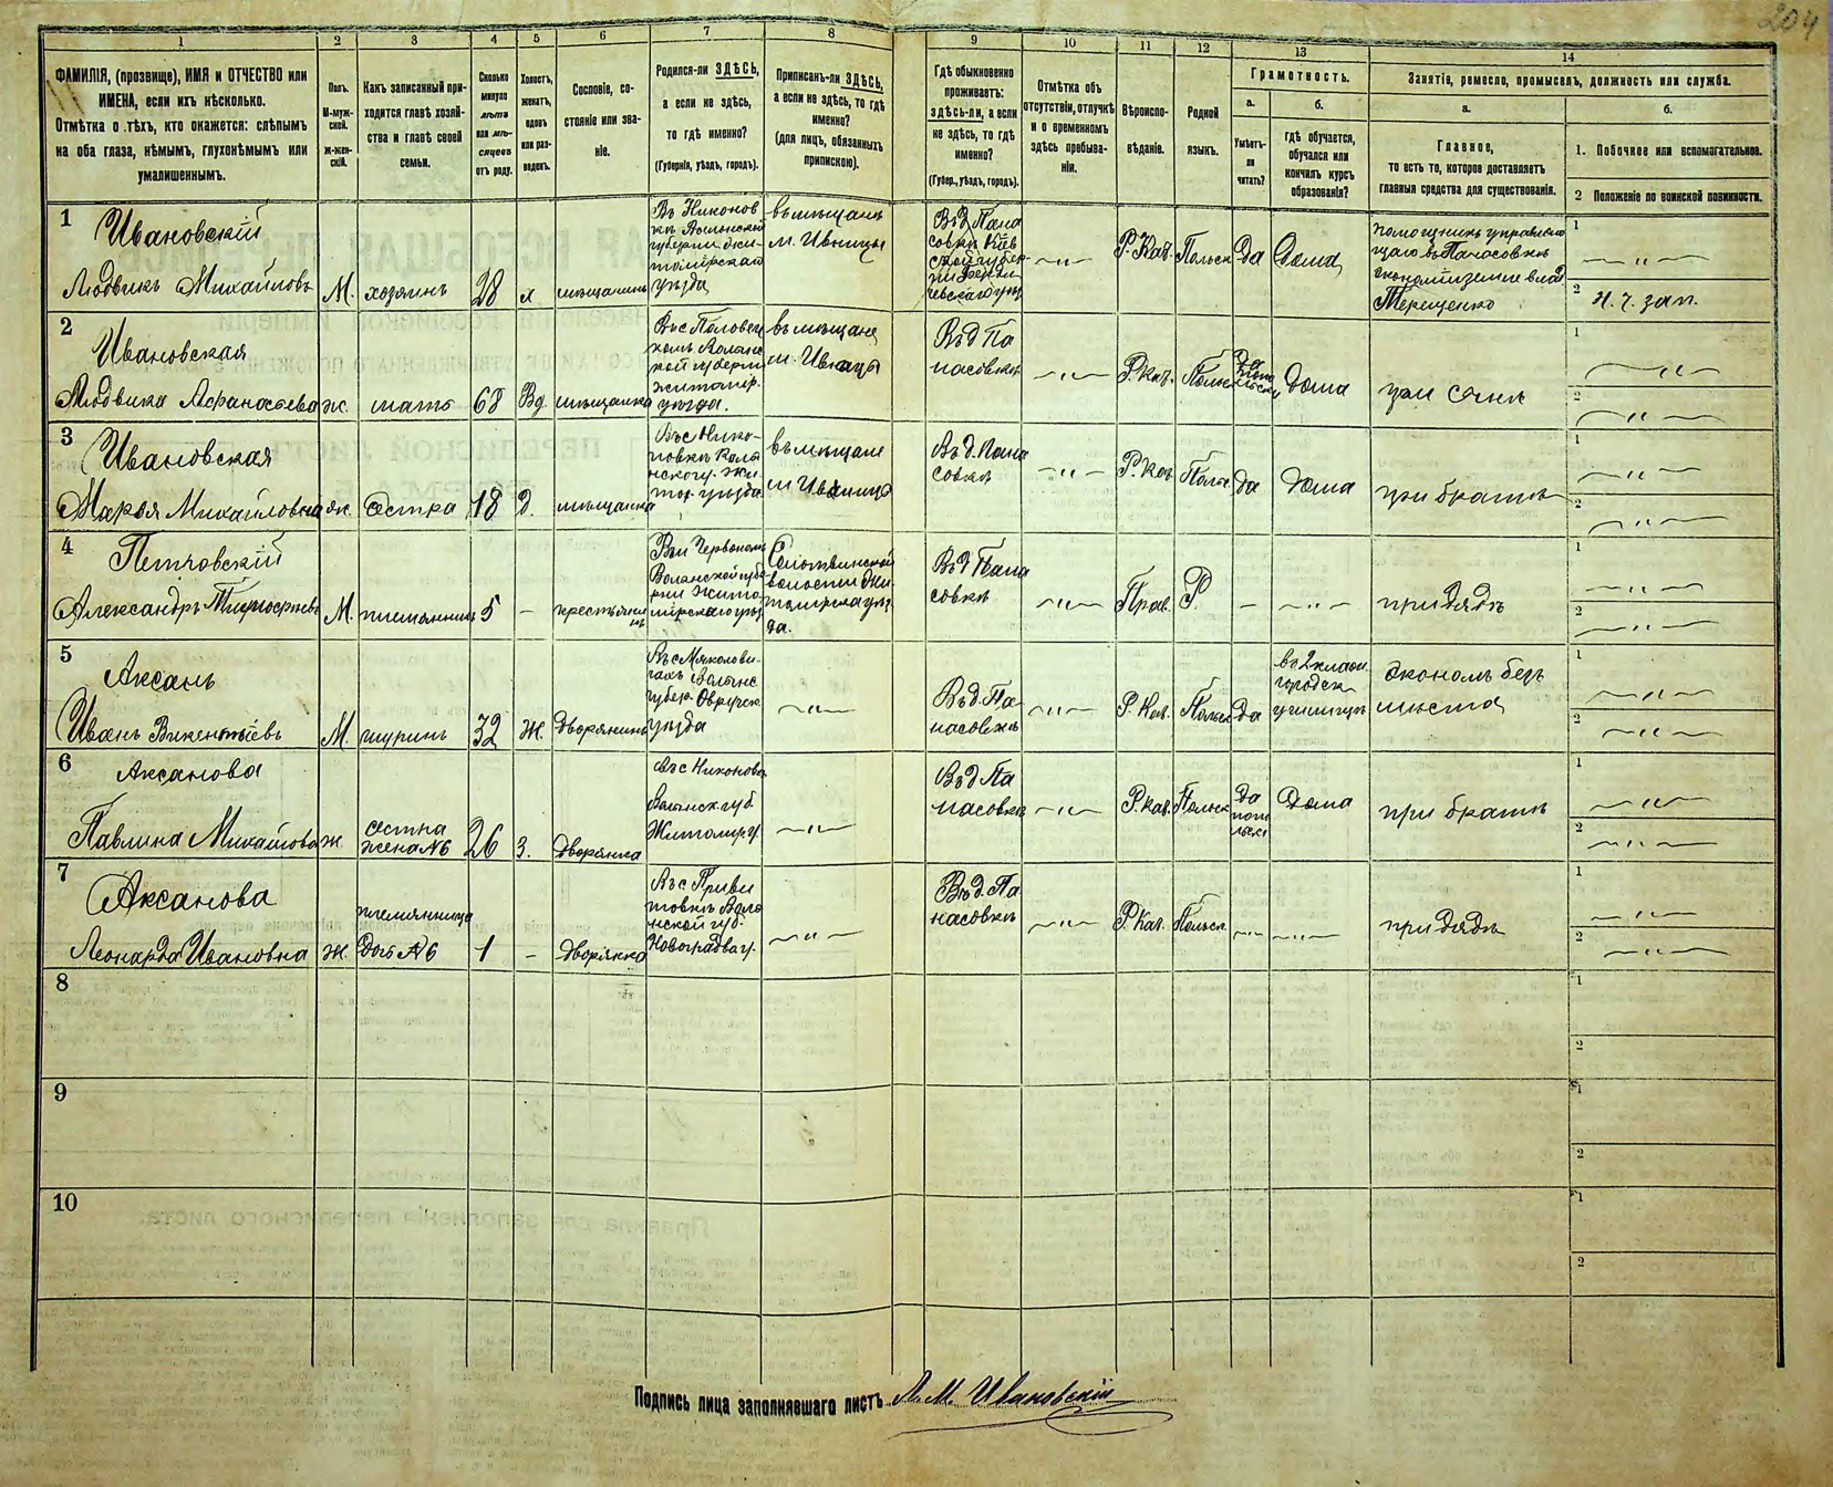 204
1 2 3 4 5 6 7 8 9 10 11 12 13 14
ФАМИЛІЯ, (прозвище), ИМЯ и ОТЧЕСТВО или
ИМЕНА, если ихъ нѣсколько.
Отмѣтка о тѣхъ, кто окажется: слѣпымъ
на оба глаза, нѣмымъ, глухонѣмымъ или
умалишеннымъ.
Полъ.
М-муж-
ской.
Ж-жен-
скій.
Какъ записанный при-
ходится главѣ хозяй-
ства и главѣ своей
семьи.
Сколько
минуло
лѣтъ
или мѣ-
сяцевъ
отъ роду.
Холостъ,
женатъ,
вдовъ
или раз-
веденъ.
Сословіе, со-
стояніе или зва-
ніе.
Родился-ли ЗДѢСЬ,
а если не здѣсь,
то гдѣ именно?
(Губернія, уѣздъ, городъ).
Приписанъ-ли ЗДѢСЬ,
а если не здѣсь, то гдѣ
именно?
(для лицъ, обязанныхъ
припискою).
Гдѣ обыкновенно
проживаетъ:
здѣсь-ли, а если
не здѣсь, то гдѣ
именно?
(Губер., уѣздъ, городъ).
Отмѣтка объ
отсутствіи, отлучкѣ
и о временномъ
здѣсь пребыва-
ніи.
Вѣроиспо-
вѣданіе.
Родной
языкъ.
Грамотность.
а.
Умѣетъ-
ли
читать?
б.
гдѣ обучается,
обучался или
кончилъ курсъ
образованія?
Занятіе, ремесло, промыселъ, должность или служба.
а.
Главное,
то есть то, которое доставляетъ
главныя средства для существованія.
б.
1. Побочное или вспомогательное.
2 Положеніе по воинской повинности.
1
Ивановскій
Людвикъ Михайловъ
М.
хозяинъ
28
х
мѣщанинъ
Въ Никонов
кѣ Волынской
губерніи Жи-
томірскаго
уѣзда
въ мѣщане
м. Ивницы
Въ д. Пана
совкѣ Кіев
ской губер
ніи Берди
чевскаго уѣз
— " —
Р. Кат.
Польск
Да
Дома
помощникъ управляю
щаго въ Панасовкѣ
экономіи земле влад
Терещенко
1
— " —
2
н. ч. зап.
2
Ивановская
Людвика Афанасьева
ж.
мать
68
Вд.
мѣщанка
житомір.
уѣзда.
въ мѣщане
м. Ивницы
Въ д Па
насовкѣ
— " —
Р. Кат.
Польск
Дома
при сынѣ
1
— " —
2
— " —
3
Ивановская
Марья Михайловна
ж.
сестра
18
Д.
мѣщанка
въ мѣщане
м Ивницы
Въ д. Пана
совкѣ
— " —
Р. Кат
Польс.
да
Дома
при братѣ
1
— " —
2
— " —
4
Петровский
Александръ
М.
племянникъ
5
—
крестьянин
Волынской губе
рніи Жито
мірскаго уѣзд
волости Жи
томірска уѣз
да.
Въ д Пана
совкѣ
— " —
Прав.
Р.
—
— " —
при дядѣ
1
— " —
2
— " —
5
Аксанъ
Иванъ Викентіевъ
М.
шуринъ
32
Ж.
Дворянинъ
губер. Овручск
уѣзда
— " —
Въ д. Па-
насовкѣ
— " —
Р. Кат.
Польск
да
въ 2 класн.
городск
училищѣ
Экономъ безъ
мѣста
1
— " —
2
— " —
6
Аксанова
Павлина Михайлова
ж
сестра
жена №6
26
З.
Дворянка
въ с Никоновк
Волынск губ
Житомир у.
— " —
Въ д Па
насовкѣ
— " —
Р. кат.
Польск
да
Дома
при братѣ
1
— " —
2
— " —
7
Аксанова
Леонарда Ивановна
Ж.
племянница
дочь №6
1
—
Дворянка
— " —
Въ д. Па
насовкѣ
— " —
Р. Кат.
Польск
— " —
— " —
при дядѣ
1
— " —
2
— " —
8
1
2
9
1
2
10
1
2
Подпись лица заполнявшаго листъ Л. М. Ивановскій